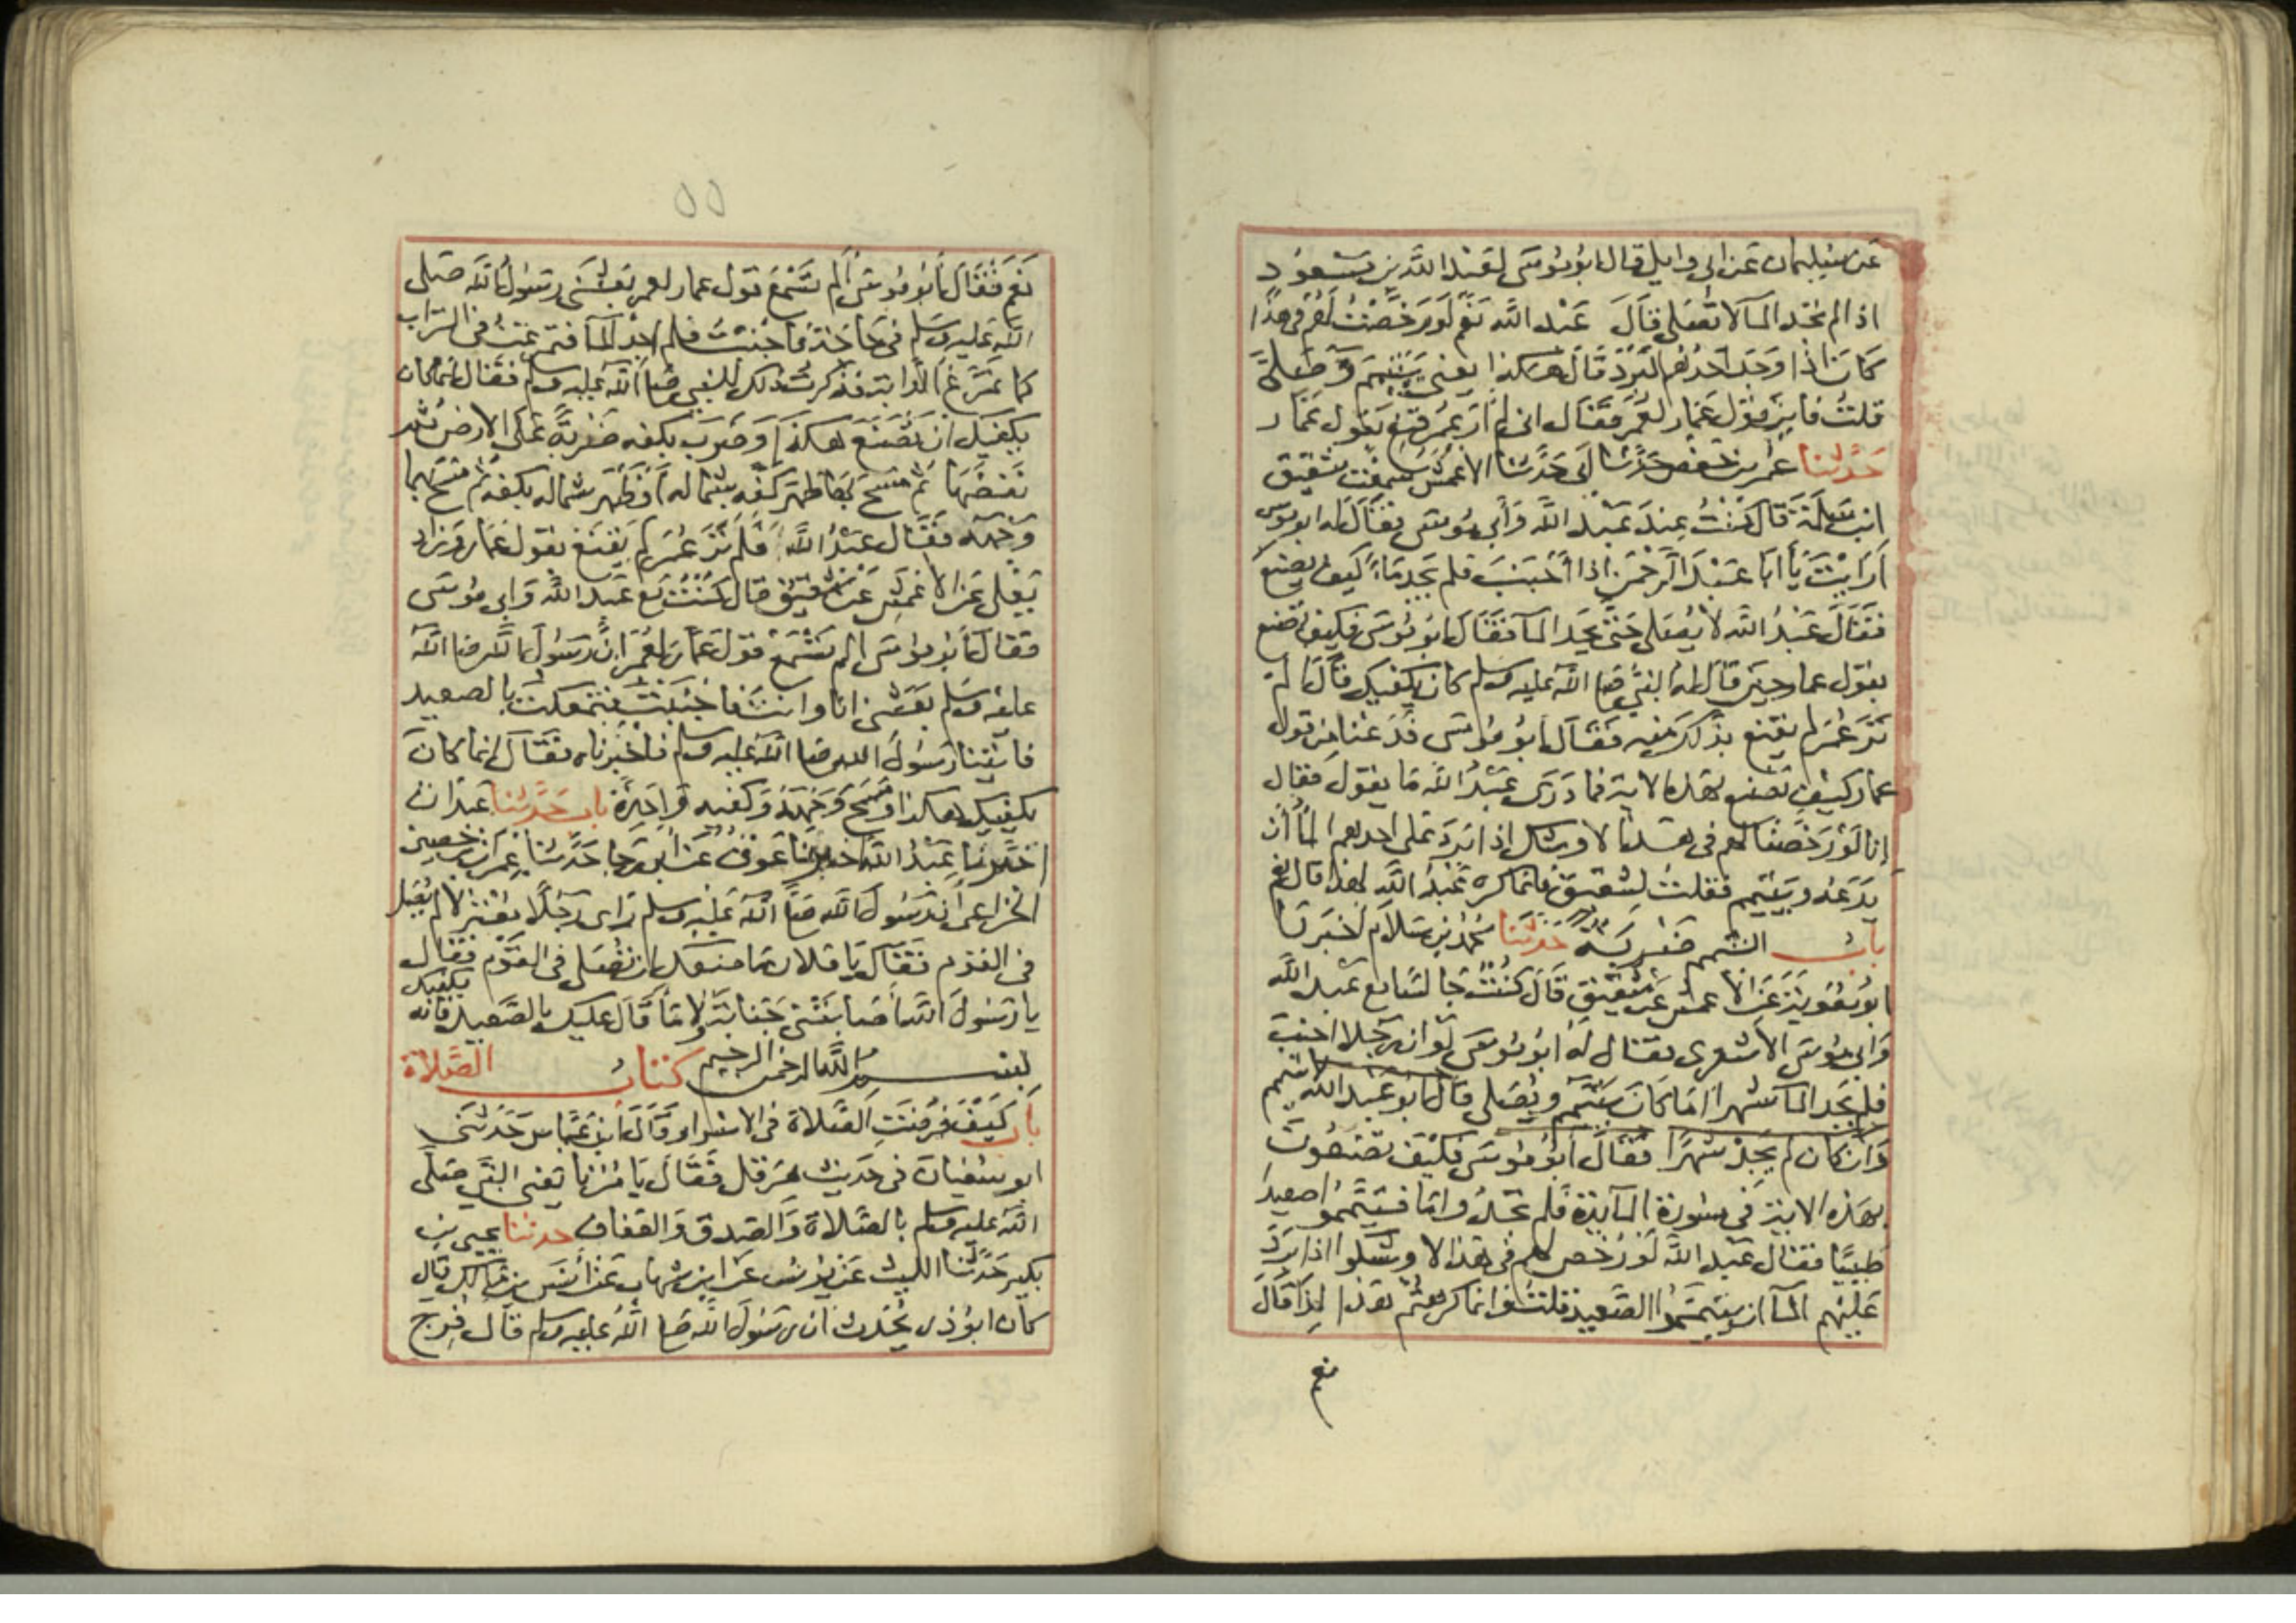 عن سليمان عن ابي وايل قال ابو موسى لعبد الله بن مسعود
اذا لم تجد الما لا تصلي قال عبد الله نعم لو رخصت لهم في هذا
كان اذا وجد احدهم البرد قال هكذا يعني يتيمم وصلى
قلت فاين قول عمار لعمر فقال اني لم ار عمر قنع بقول عمار
حدثنا عمر بن حفص حدثنا ابي حدثنا الاعمش سمعت شقيق
ابن سلمة قال كنت عند عبد الله وابي موسى فقال له ابو موسى
ارايت يا ابا عبد الرحمن اذا اجنب فلم يجد ماء كيف يصنع
فقال عبد الله لا يصلي حتى يجد الما فقال ابو موسى فكيف تصنع
بقول عمار حين قال له النبي صلى الله عليه وسلم كان يكفيك قال الم
تر عمر لم يقنع بذلك منه فقال ابو موسى فدعنا من قول
عمار كيف تصنع بهذه الاية فما درى عبد الله ما يقول فقال
انا لو رخصنا لهم في هذا لاوشك اذا برد على احدهم الما ان
يدعه ويتيمم فقلت لشقيق فانما كره عبد الله لهذا قال نعم
باب التيمم ضربة حدثنا محمد بن سلام اخبرنا
ابو معوية عن الاعمش عن شقيق قال كنت جالسا مع عبد الله
وابي موسى الاشعري فقال له ابو موسى لو ان رجلا اجنب
فلم يجد الما شهرا اما كان يتيمم ويصلي قال ابو عبد الله لا يتيمم
وان كان لم يجد شهرا فقال ابو موسى فكيف تصنعون
بهذه الاية في سورة المايدة فلم تجدوا ما فتيمموا صعيدا
طيبا فقال عبد الله لو رخص لهم في هذا لاوشكوا اذا برد
عليهم الما ان يتيمموا الصعيد قلت وانما كرهتم هذا لذا قال
نعم
٥٥
نعم فقال ابو موسى الم تسمع قول عمار لعمر بعثني رسول الله صلى
الله عليه وسلم في حاجة فاجنبت فلم اجد الما فتمرغت في التراب
كما تمرغ الدابة فذكرت ذلك للنبي صلى الله عليه وسلم فقال انما كان
يكفيك ان تصنع هكذا وضرب بكفه ضربة على الارض ثم
نفضها ثم مسح بها ظهر كفه بشماله او ظهر شماله بكفه ثم مسح بهما
وجهه فقال عبد الله فلم تر عمر لم يقنع بقول عمار وزاد
يعلى عن الاعمش عن شقيق قال كنت مع عبد الله وابي موسى
فقال ابو موسى الم تسمع قول عمار لعمر ان رسول الله صلى الله
عليه وسلم بعثني انا وانت فاجنبت فتمعكت بالصعيد
فاتينا رسول الله صلى الله عليه وسلم فاخبرناه فقال انما كان
يكفيك هكذا ومسح وجهه وكفيه واحدة باب حدثنا عبدان
اخبرنا عبد الله اخبرنا عوف عن ابي رجا حدثنا عمران بن حصين
الخزاعي ان رسول الله صلى الله عليه وسلم راى رجلا معتزلا لم يصل
في القوم فقال يا فلان ما منعك ان تصلي في القوم فقال
يا رسول الله اصابتني جنابة ولا ما قال عليك بالصعيد فانه يكفيك
بسم الله الرحمن الرحيم كتاب الصلاة
باب كيف فرضت الصلاة في الاسراء وقال ابن عباس حدثني
ابو سفيان في حديث هرقل فقال يامرنا يعني النبي صلى
الله عليه وسلم بالصلاة والصدق والعفاف حدثنا يحيى بن
بكير حدثنا الليث عن يونس عن ابن شهاب عن انس بن مالك قال
كان ابو ذر يحدث ان رسول الله صلى الله عليه وسلم قال فرج